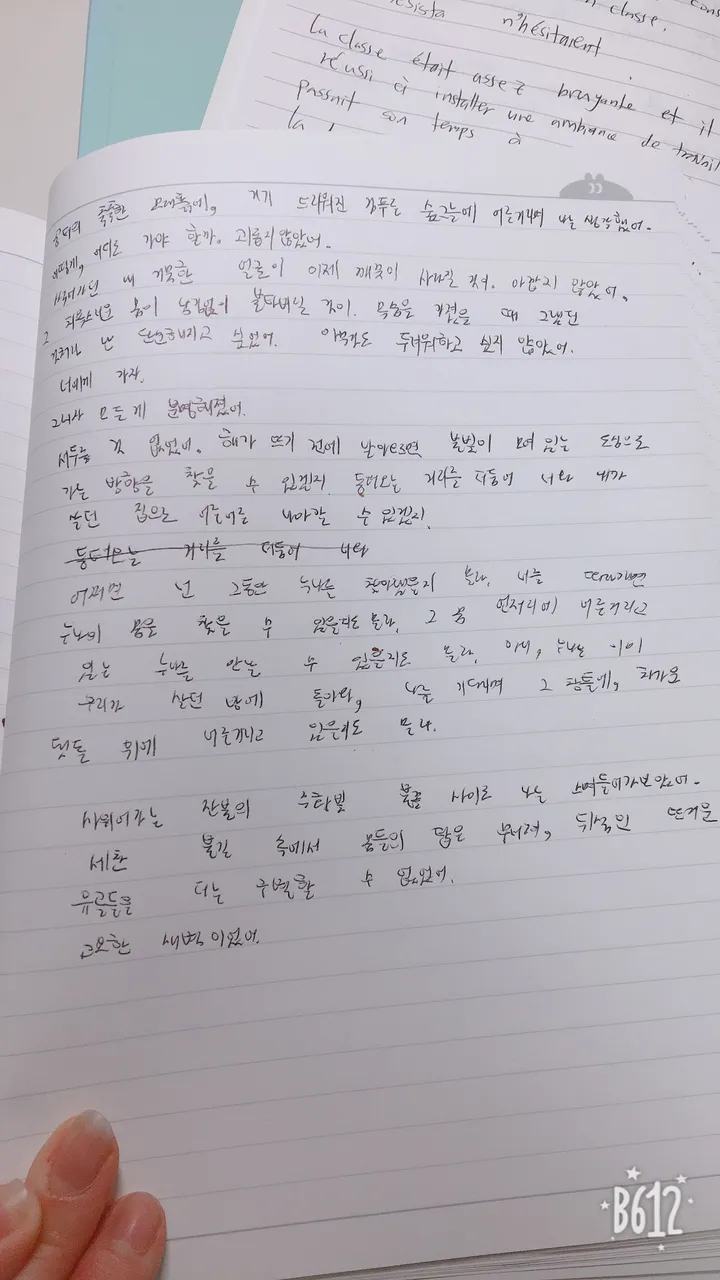 résista n'hésitaient
en classe.
La classe était assez bruyante et il
réussi à installer une ambiance de travail
passait son temps à
la
공터의 축축한 모래흙에, 거기 드리워진 검푸른 숲그늘에 어른거리며 난 생각했어.
어떻게, 어디로 가야 할까. 괴롭지 않았어.
썩어가던 내 거뭇한 얼굴이 이제 깨끗이 사라질 것이. 아깝지 않았어,
치욕스러운 몸이 남김없이 불타버릴 것이. 목숨을 가졌을 때 그랬던
것처럼 난 단순해지고 싶었어. 아무것도 두려워하고 싶지 않았어.
너에게 가자.
그러자 모든 게 분명해졌어.
서두를 것 없었어. 해가 뜨기 전에 날아오르면 불빛이 모여 있는 도심으로
가는 방향을 찾을 수 있겠지. 동터오는 거리를 더듬어 너와 내가
살던 집으로 어른어른 나아갈 수 있겠지.
동터오는 거리를 더듬어 너와
어쩌면 넌 그동안 누나를 찾아냈을지 몰라. 너를 따라가면
누나의 몸을 찾을 수 있을지도 몰라. 그 몸 언저리에 어른거리고
있는 누나를 만날 수 있을지도 몰라. 아니, 누나는 이미
우리가 살던 방에 돌아와, 나를 기다리며 그 창틀에, 차가운
댓돌 위에 어른거리고 있을지도 몰라.
사위어가는 잔불의 수탉빛 불꽃 사이로 나는 스며들어가보았어.
세찬 불길 속에서 몸들의 탑은 무너져, 뒤섞인 뜨거운
유골들을 더는 구별할 수 없었어.
고요한 새벽이었어.
B612